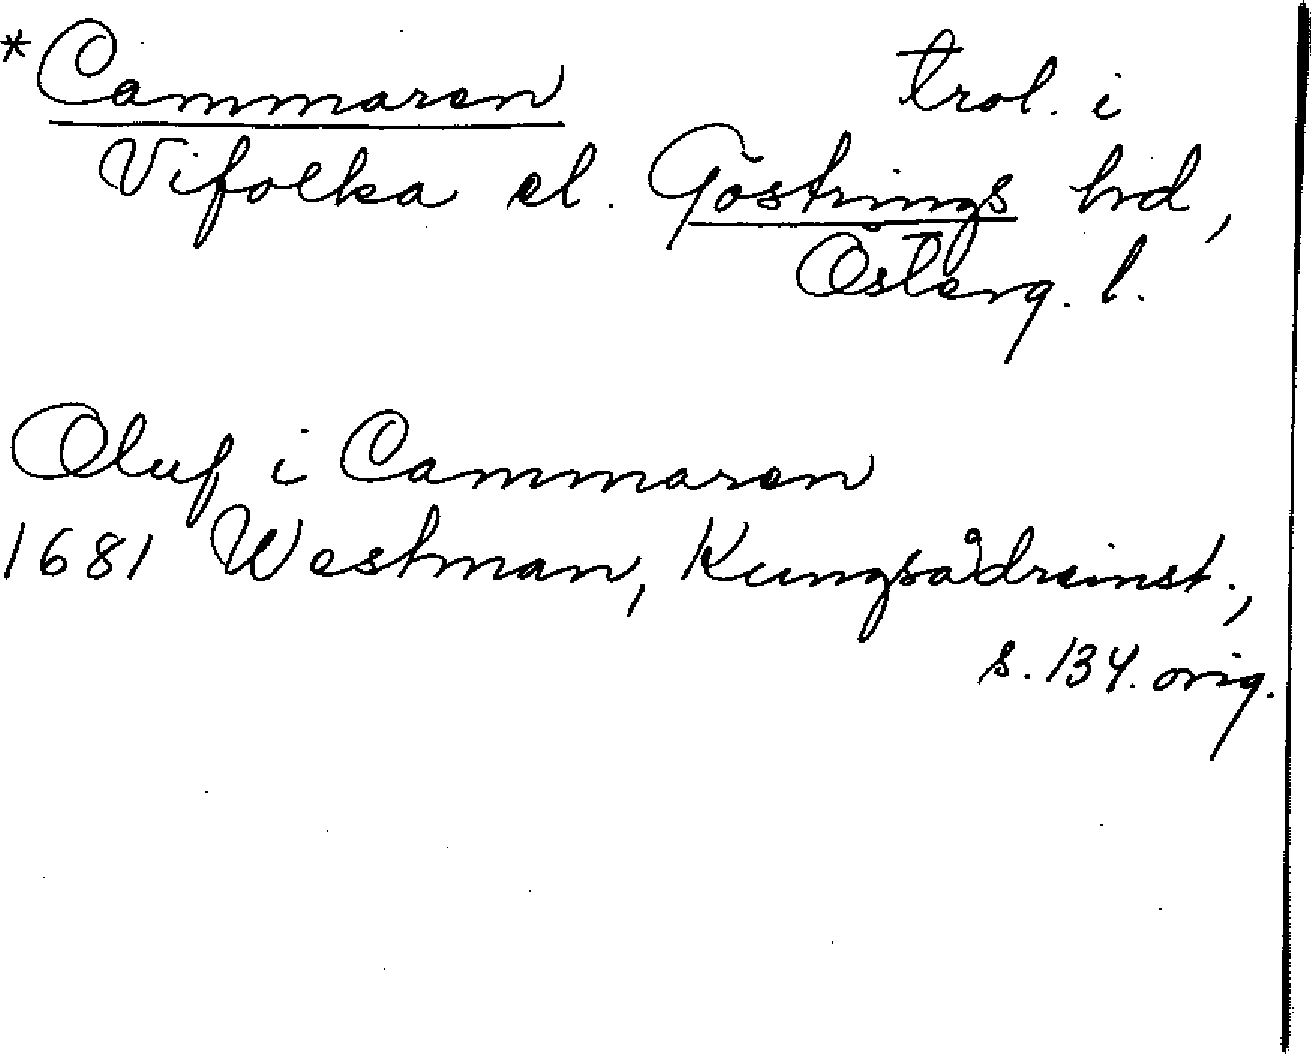 *Cammaren trol. i
Vifolka el. Göstrings hrd,
Österg. l.
Oluf i Cammaren
1681 Westman, Kungsådreinst.,
s. 134. orig.